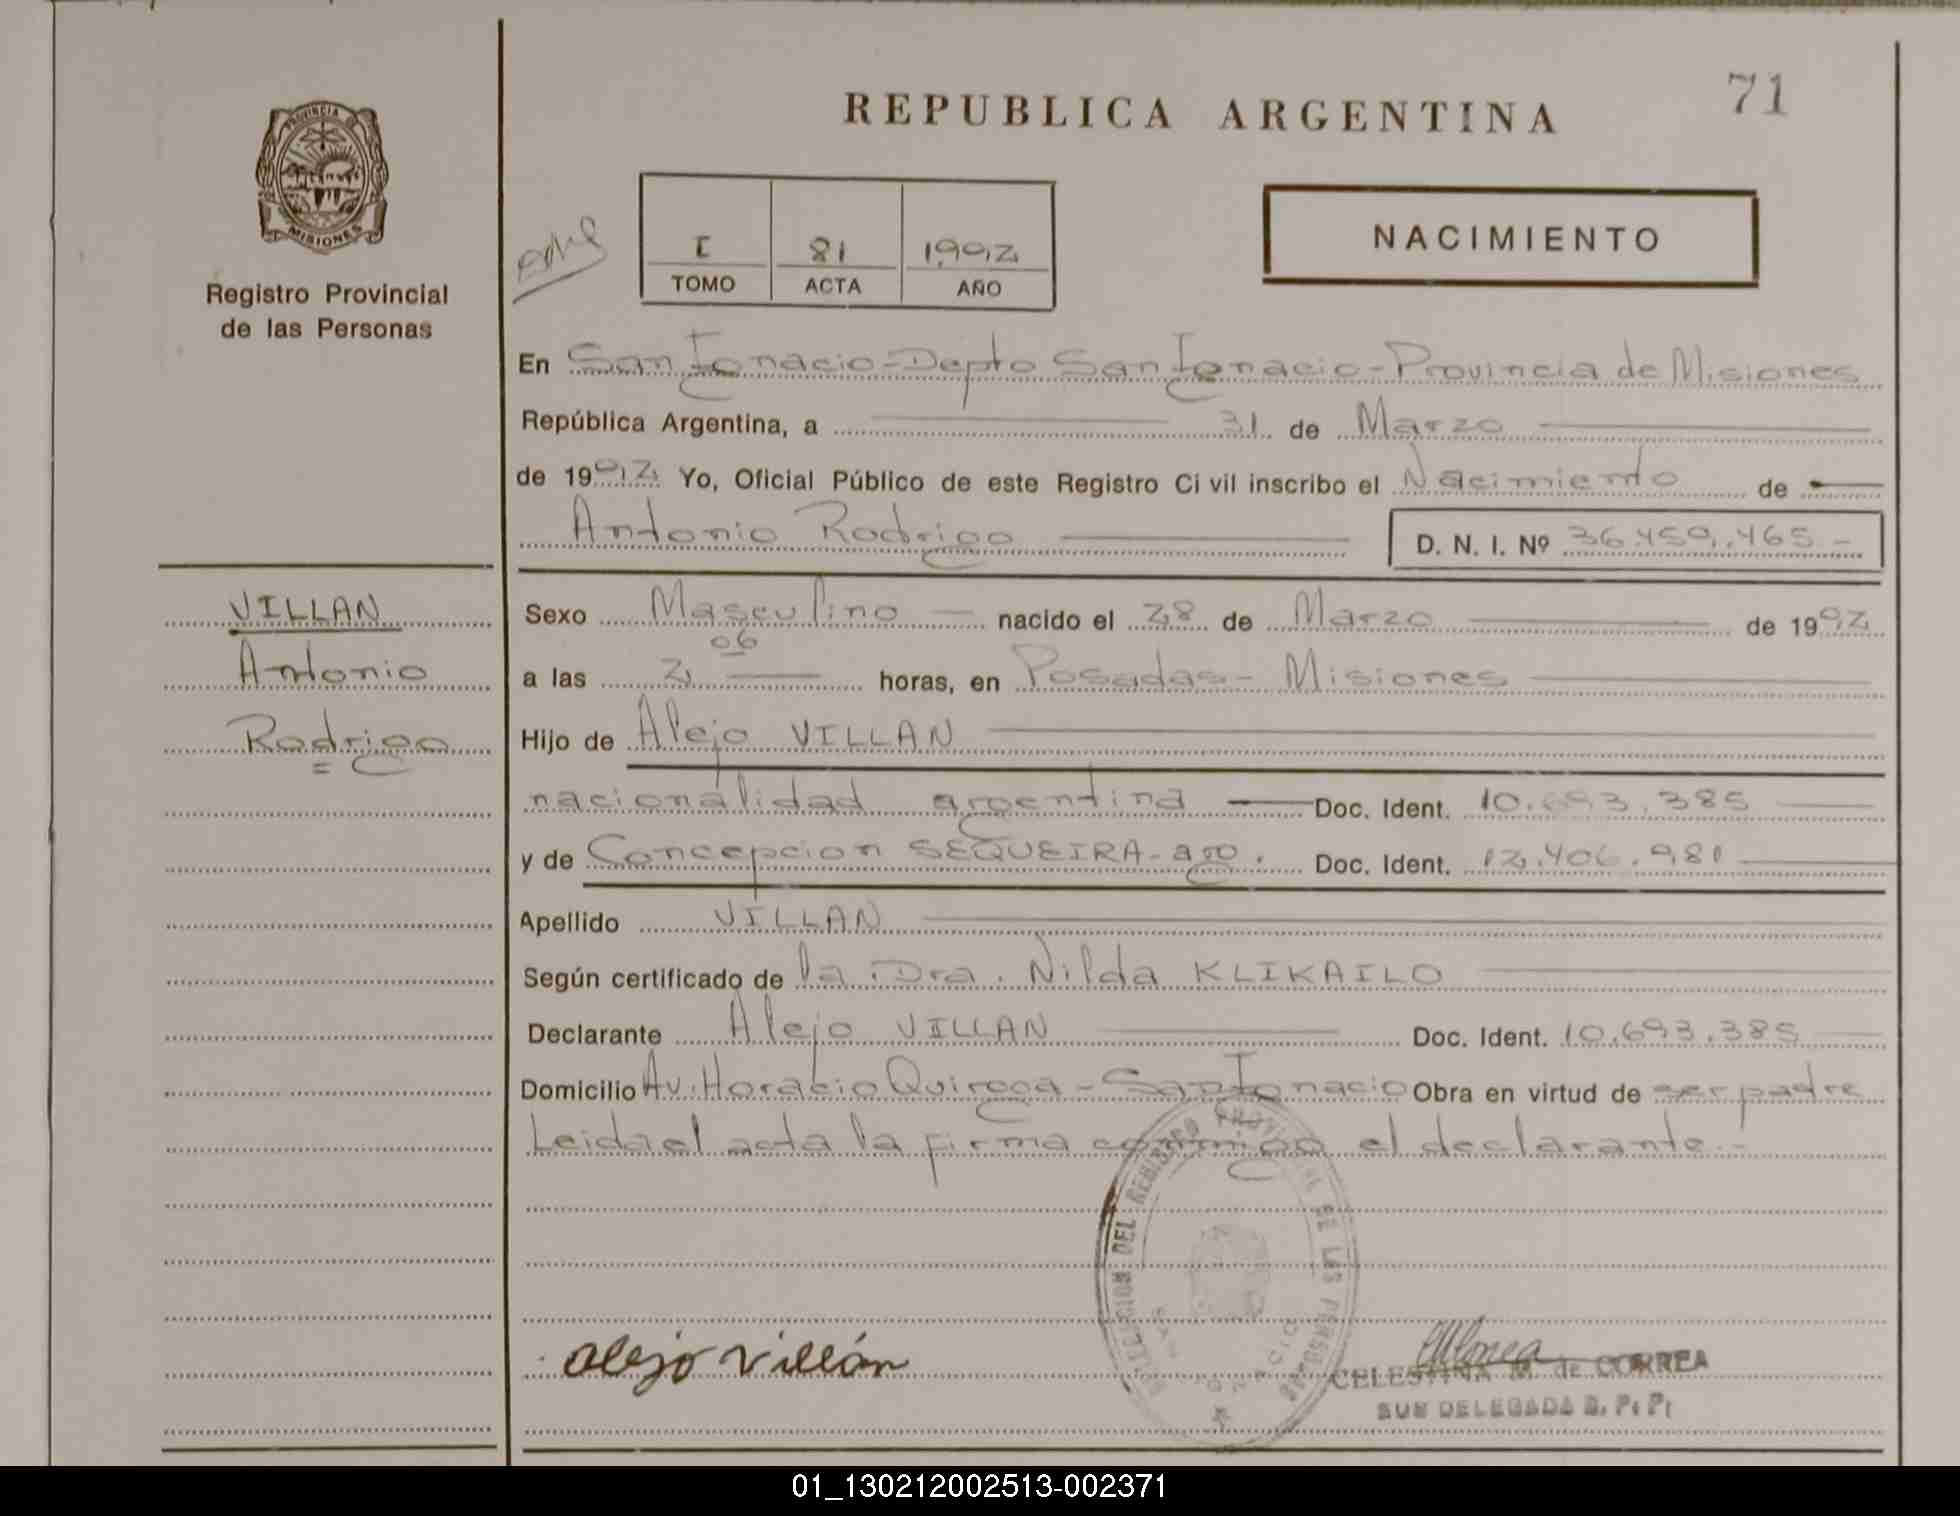 71
REPUBLICA ARGENTINA
PROVINCIA DE
MISIONES
Registro Provincial
de las Personas
I 81 1992
TOMO ACTA AÑO
NACIMIENTO
En San Ignacio-Depto San Ignacio-Provincia de Misiones
República Argentina, a 31 de Marzo
de 1992 Yo, Oficial Público de este Registro Civil inscribo el Nacimiento de
Antonio Rodrigo D. N. I. Nº 36.459.465-
VILLAN
Antonio
Rodrigo
Sexo Masculino nacido el 28 de Marzo de 1992
a las 2 06 horas, en Posadas- Misiones
Hijo de Alejo VILLAN
nacionalidad argentina Doc. Ident. 10.693.385
y de Concepcion SEQUEIRA-arg. Doc. Ident. 12.406.981
Apellido VILLAN
Según certificado de la Dra. Nilda KLIKAILO
Declarante Alejo VILLAN Doc. Ident. 10.693.385
Domicilio Av. Horacio Quiroga - San Ignacio Obra en virtud de ser padre
Leida el acta la firma conmigo el declarante.-
DEL REGISTRO PROVINCIAL DE LAS PERSONAS
SAN IGNACIO
Alejo Villán
CELESTINA M. de CORREA
SUB DELEGADA R. P. P.
01_130212002513-002371